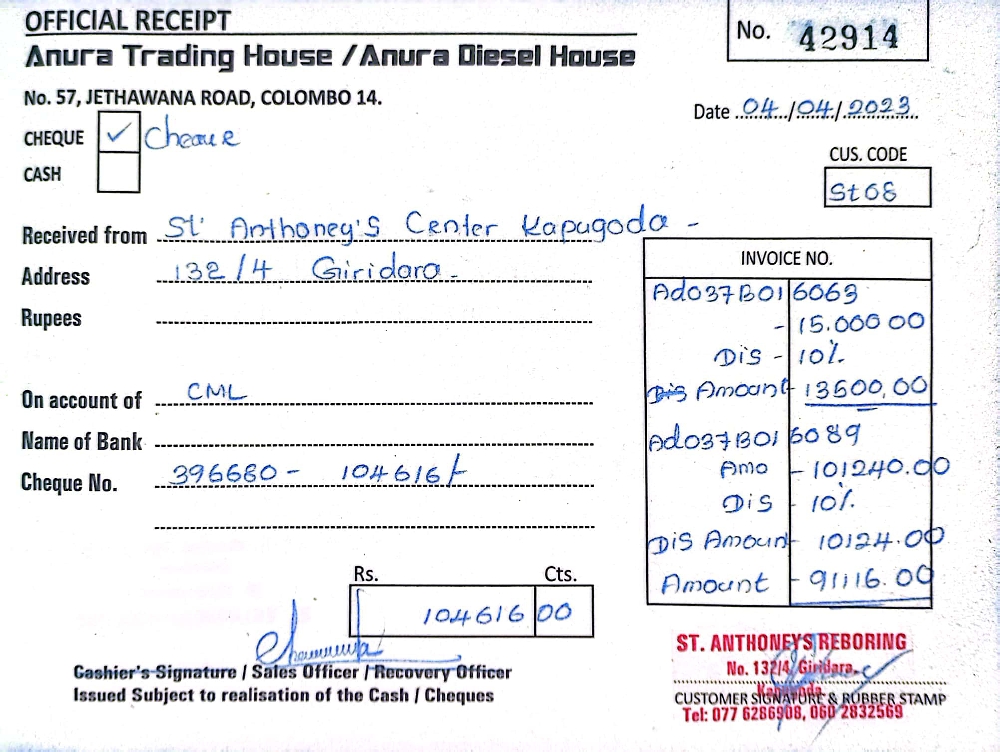 OFFICIAL RECEIPT
No. 42914
Anura Trading House / Anura Diesel House
No. 57, JETHAWANA ROAD, COLOMBO 14.
Date 04/04/2023
CHEQUE ✓ Cheque
CASH
CUS. CODE
St08
Received from St' Anthoney's Center Kapugoda -
Address 132/4 Giridara -
Rupees
On account of CML
Name of Bank
Cheque No. 396680 - 104616/-
INVOICE NO.
Ad037B016063
- 15.000 00
Dis - 10%
Dis Amount - 13500,00
Ad037B016089
Amo - 101240.00
Dis - 10%
Dis Amount - 10124.00
Amount - 91116.00
Rs. Cts.
104616 00
Cashier's Signature / Sales Officer / Recovery Officer
Issued Subject to realisation of the Cash / Cheques
ST. ANTHONEYS REBORING
No. 132/4, Giridara,
CUSTOMER SIGNATURE & RUBBER STAMP
Tel: 077 6286908, 060 2832569